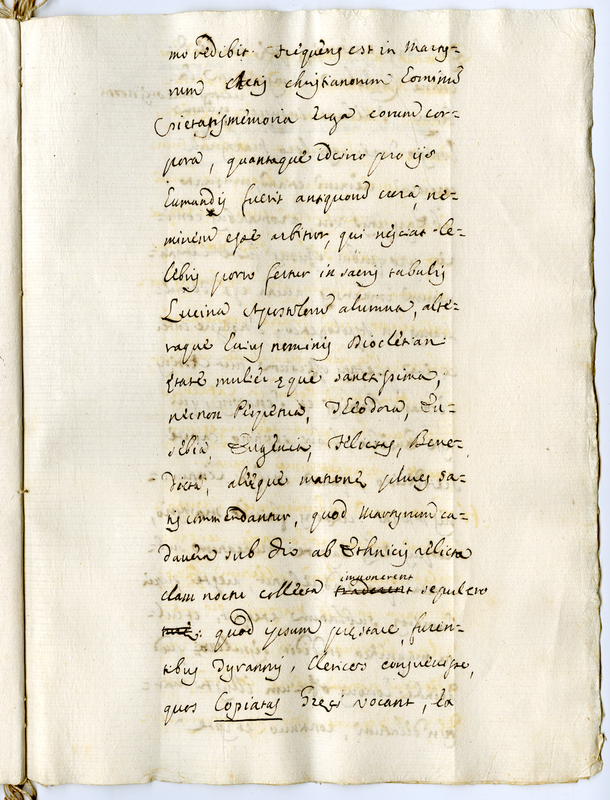 mo redibit. Frequens est in Marty-
rum Actis christianorum hominũ
Pietatis memoria erga eorum cor-
pora, quantaque ideiro pro ijs
humandis fuerit antiquorũ cura, ne-
minem esse arbitror, qui nesciat. Ce-
lebris porro fertur in sacris tabulis
Lucina Apostolorũ alumna, alte-
raque huius nominis Diocletiani
ętate mulier ęque sanctissima,
necnon Perpetua, Theodora, Eu-
sebia, Eugenia, Felicitas, Bene-
dicta, alięque matronę plures sa-
tis commendantur, quod Martyrum ca-
davera sub dio ab Ethnicis relicta
clam noctu collecta imponerent sepulcro
quod ipsum pręstare, furen-
tibus Tyrannis, Clericos consuevisse,
quos Copiatas Gręci vocant, ea